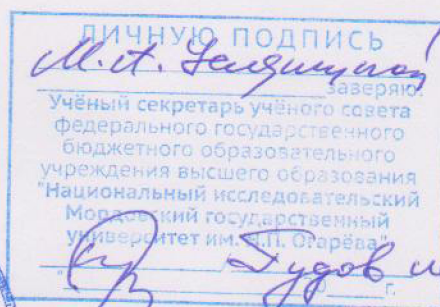 ЛИЧНУЮ ПОДПИСЬ
М.А.
заверяю:
Учёный секретарь учёного совета
федерального государственного
бюджетного образовательного
учреждения высшего образования
"Национальный исследовательский
Мордовский государственный
университет им. Н.П. Огарёва"
Гудов
г.